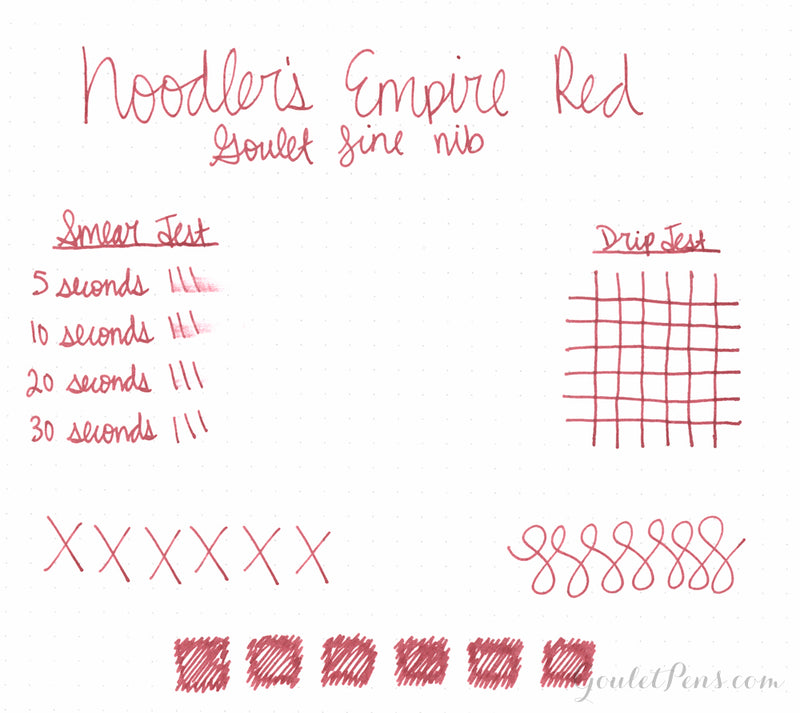 Noodler's Empire Red
Goulet fine nib
Smear Test
5 seconds
10 seconds
20 seconds
30 seconds
Drip Test
X X X X X X
GouletPens.com